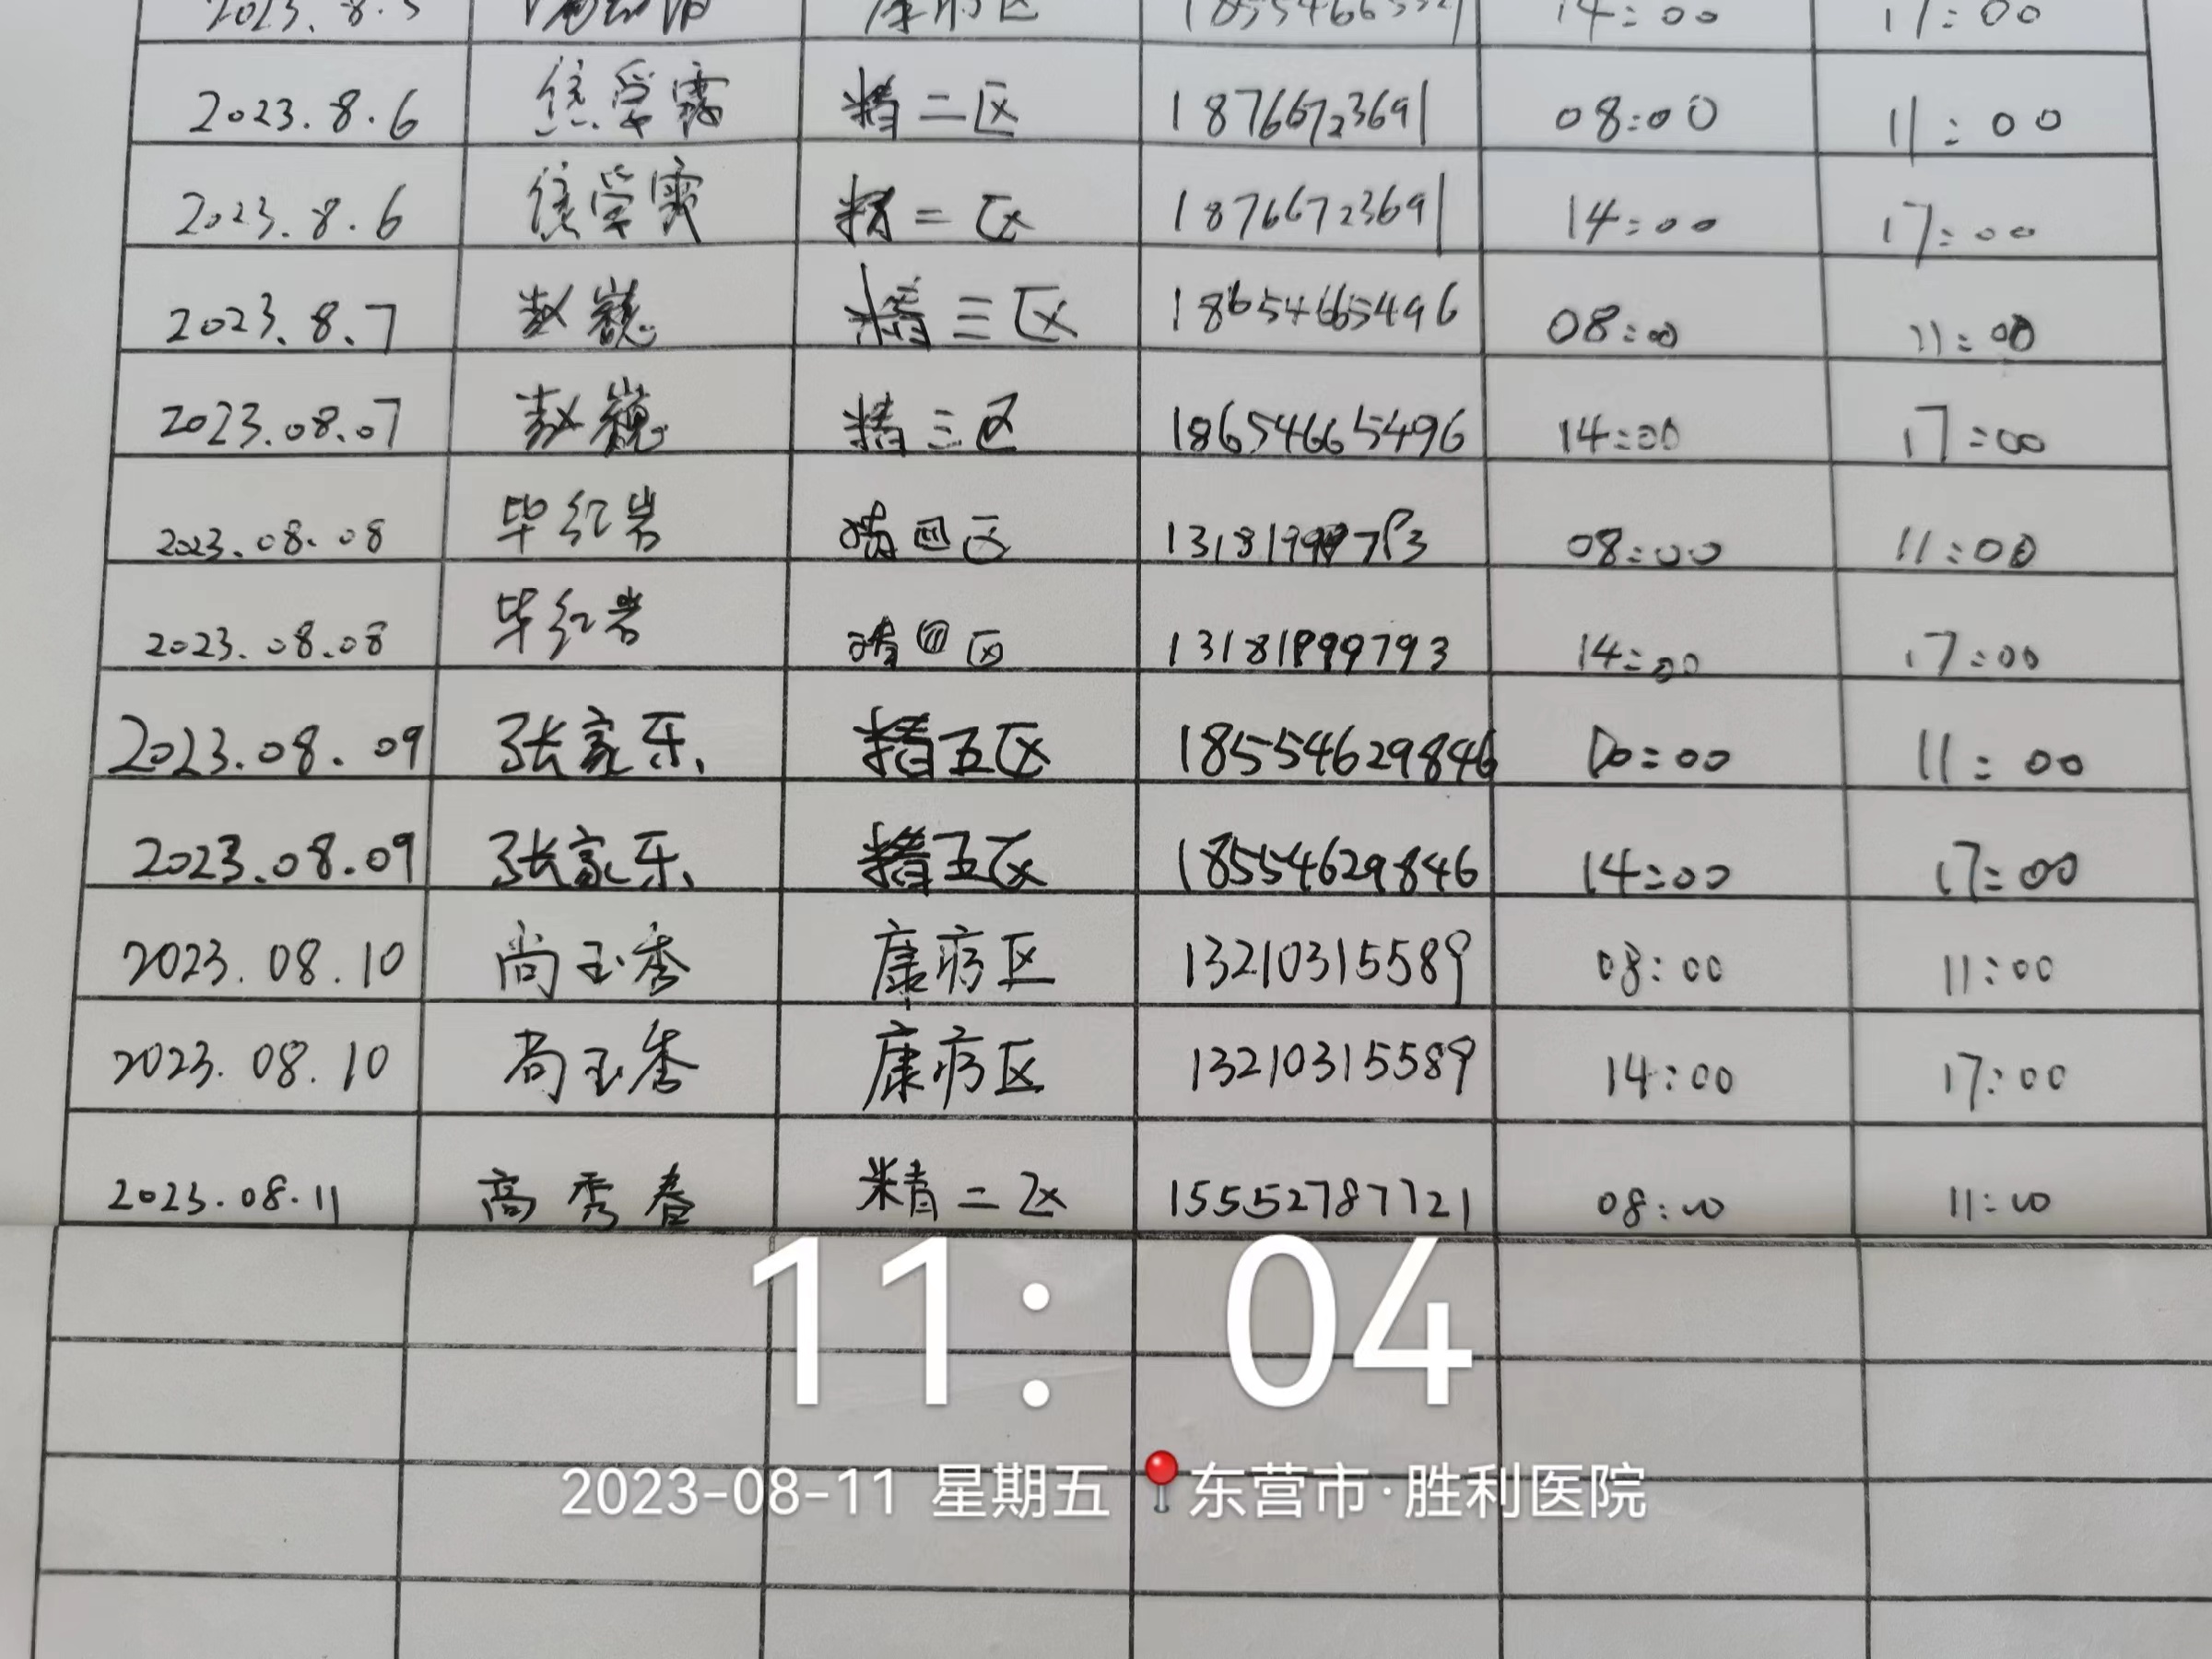 2023.8.6 精二区 18766723691 08:00 11:00
2023.8.6 精二区 18766723691 14:00 17:00
2023.8.7 赵巍 精三区 18654665496 08:00 11:00
2023.08.07 赵巍 精三区 18654665496 14:00 17:00
2023.08.08 毕红岩 精四区 08:00 11:00
2023.08.08 毕红岩 精四区 13181999793 14:00 17:00
2023.08.09 张家乐 精五区 18554629846 11:00
2023.08.09 张家乐 精五区 18554629846 14:00 17:00
2023.08.10 尚玉秀 康疗区 13210315589 08:00 11:00
2023.08.10 尚玉秀 康疗区 13210315589 14:00 17:00
2023.08.11 高秀春 精二区 15552787721 08:00 11:00
11:04
2023-08-11 星期五 东营市·胜利医院